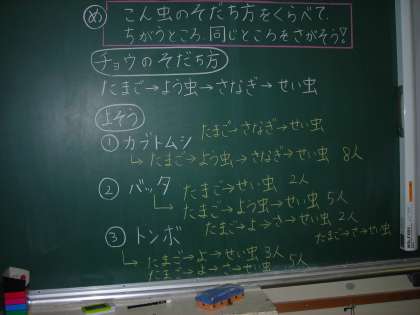 め こん虫のそだち方をくらべて、
ちがうところ、同じところをさがそう!
チョウのそだち方
たまご→よう虫→さなぎ→せい虫
よそう
① カブトムシ たまご→さなぎ→せい虫
たまご→よう虫→さなぎ→せい虫 8人
② バッタ たまご→せい虫 2人
たまご→よう虫→せい虫 5人
たまご→よ→さ→せい虫 2人
③ トンボ たまご→さ→せい虫
たまご→よ→せい虫 3人
たまご→よ→さ→せい虫 5人